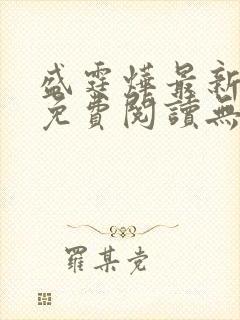 盛霆燁最新
免費閱讀無
羅某党